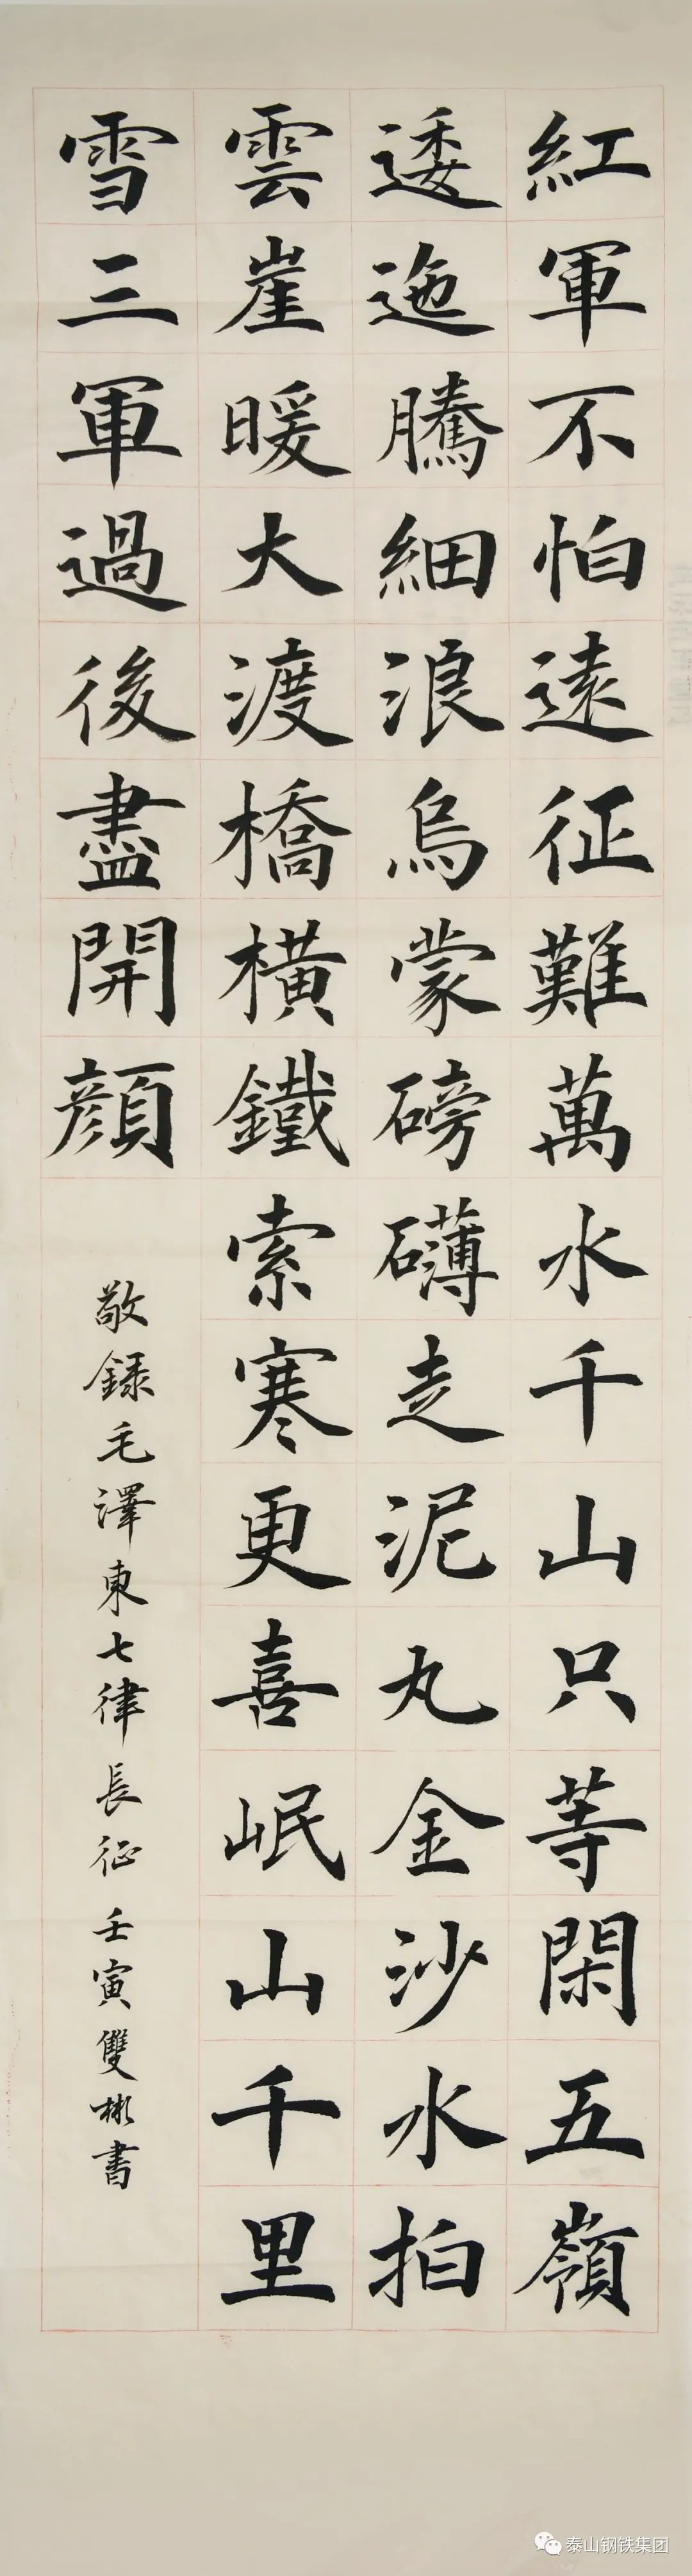 紅軍不怕遠征難萬水千山只等閑五嶺
逶迤騰細浪烏蒙磅礴走泥丸金沙水拍
雲崖暖大渡橋橫鐵索寒更喜岷山千里
雪三軍過後盡開顏
敬録毛澤東七律長征 壬寅雙彬書
泰山钢铁集团